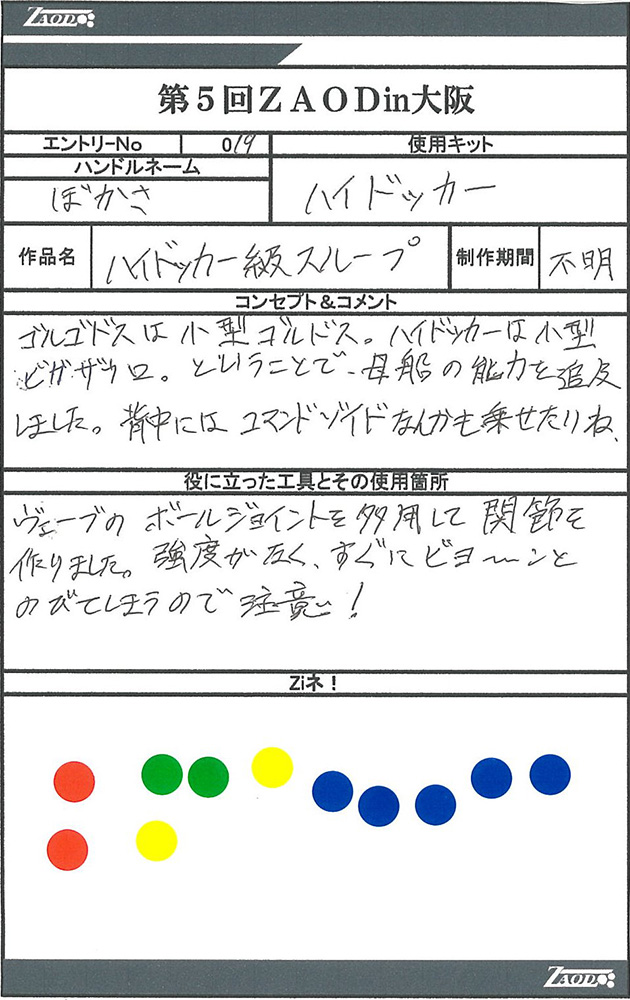 ZAOD
第5回ZAODin大阪
エントリーNo 019 使用キット
ハンドルネーム
ぼかさ ハイドッカー
作品名 ハイドッカー級スループ 制作期間 不明
コンセプト&コメント
ゴルゴドスは小型ゴルドス。ハイドッカーは小型
ビガザウロ。ということで、母船の能力を追及
しました。背中にはコマンドゾイドなんかも乗せたりね、
役に立った工具とその使用箇所
ヴェーブのボールジョイントを多用して関節を
作りました。強度がなく、すぐにビヨーーンと
のびてしまうので注意!
Ziネ!
ZAOD